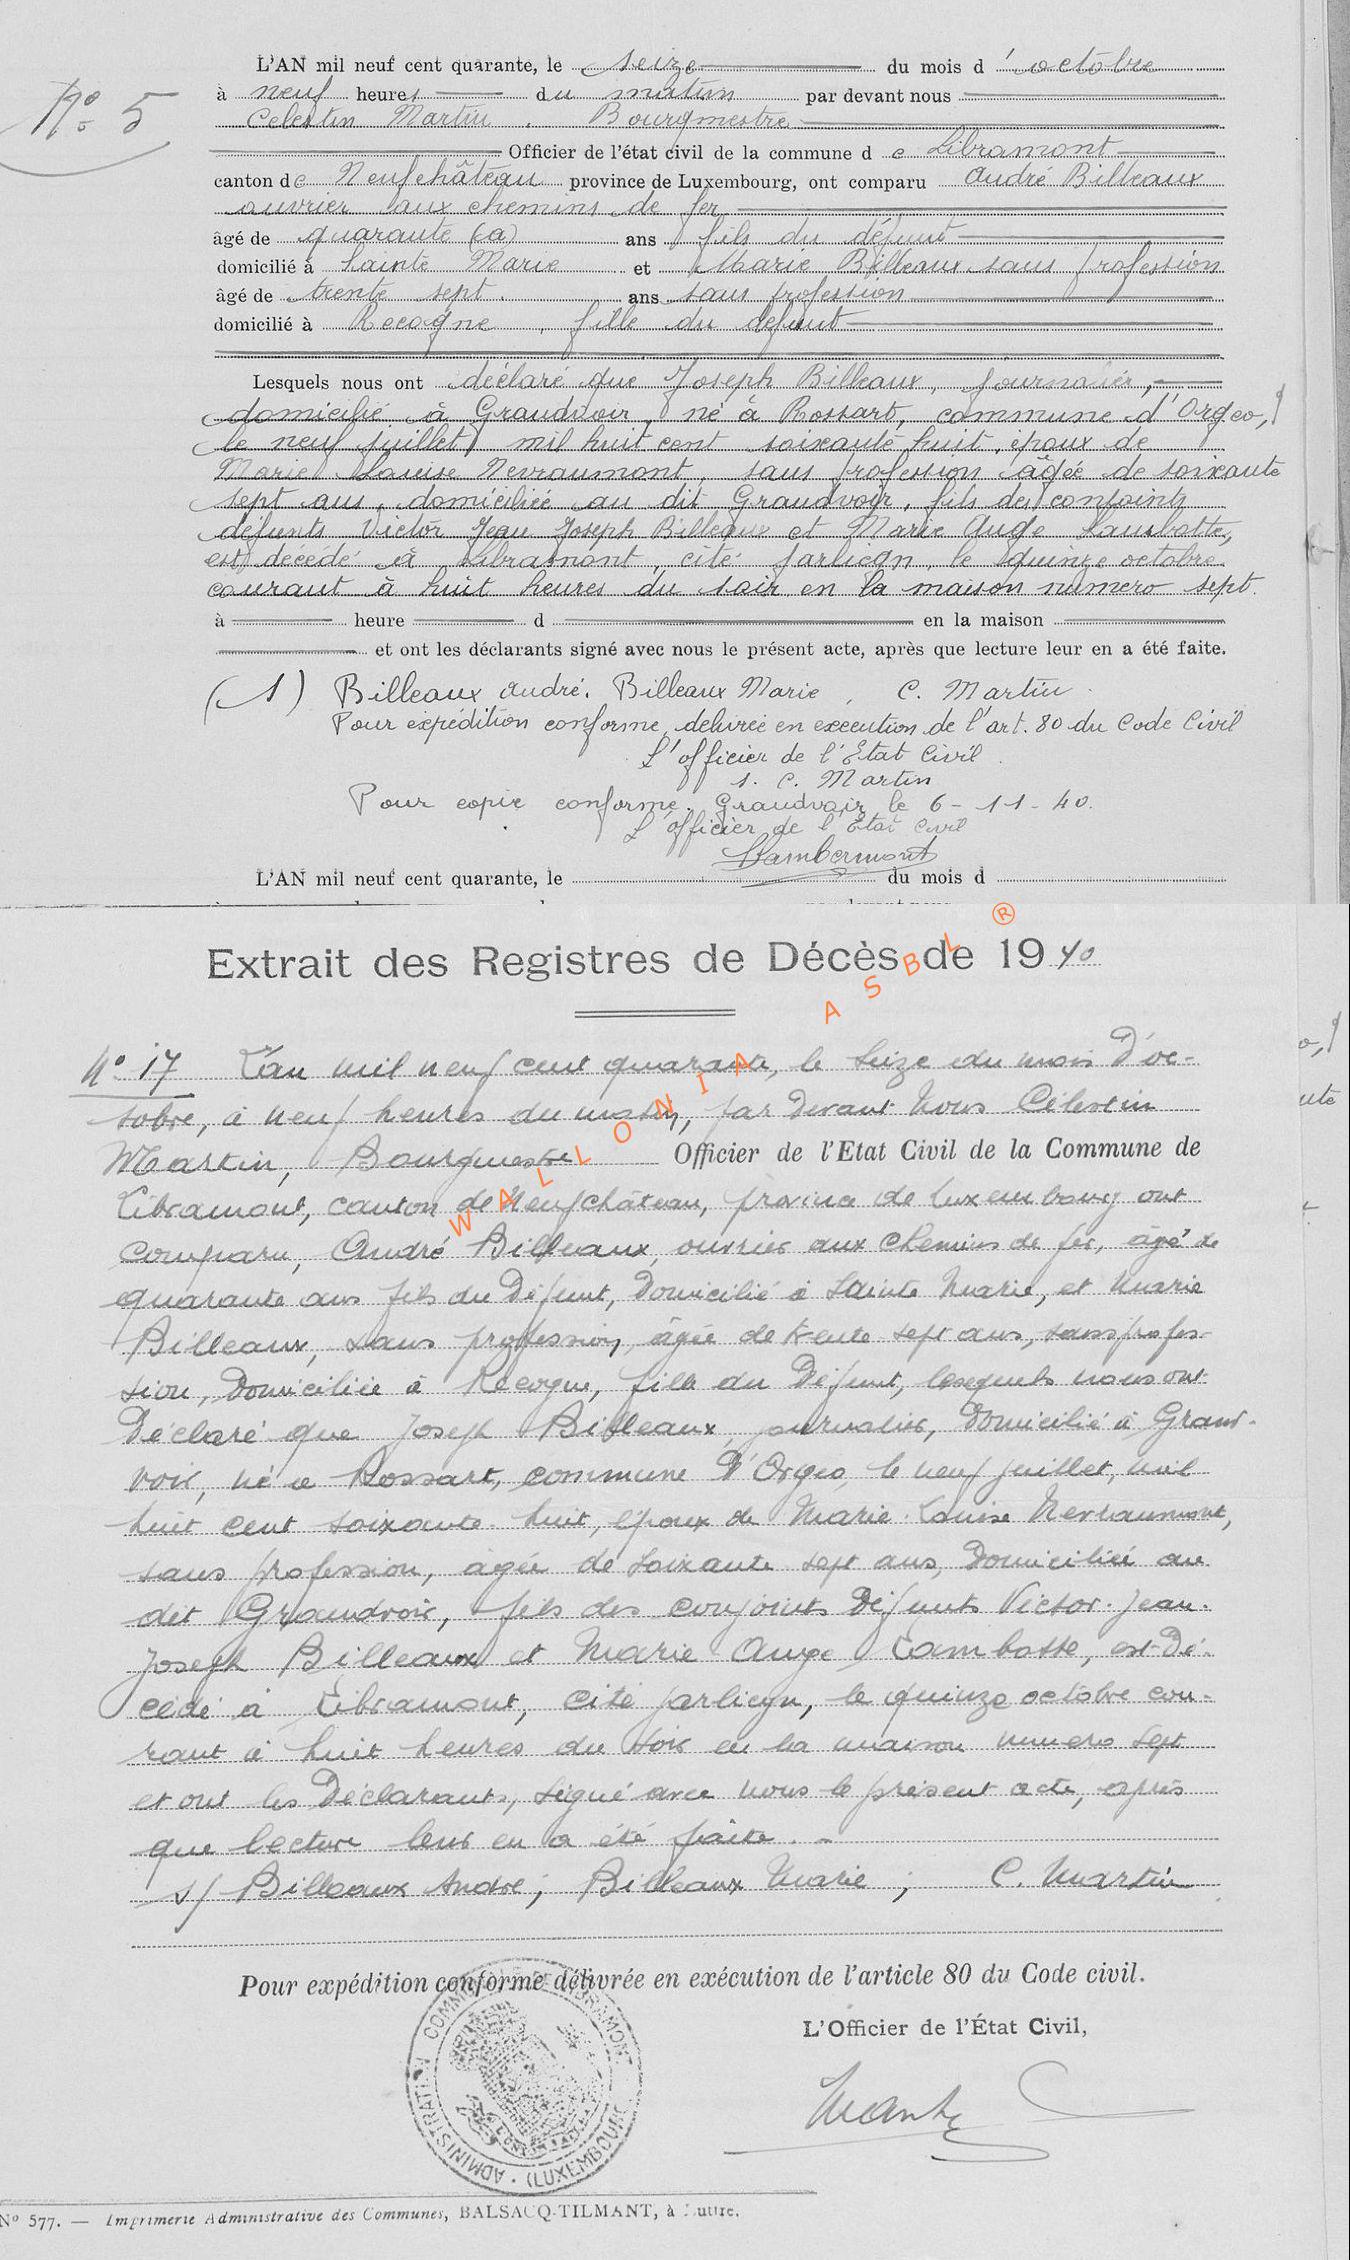 N° 5
L'AN mil neuf cent quarante, le seize du mois d'octobre
à neuf heures du matin par devant nous
Celestin Martin, Bourgmestre
Officier de l'état civil de la commune de Libramont
canton de Neufchâteau province de Luxembourg, ont comparu André Billeaux
ouvrier aux chemins de fer
âgé de quarante (a) ans fils du défunt
domicilié à Sainte Marie et Marie Billeaux sans profession
âgé de trente sept ans sans profession
domicilié à Recogne, fille du défunt
Lesquels nous ont déclaré que Joseph Billeaux, journalier,
domicilié à Grandvoir, né à Rossart, commune d'Orgeo,
le neuf juillet mil huit cent soixante huit, époux de
Marie Louise Nevraumont, sans profession âgée de soixante
sept ans, domiciliée au dit Grandvoir, fils des conjoints
défunts Victor Jean Joseph Billeaux et Marie Ange Lambotte,
est décédé à Libramont, cité Jarlicyn, le quinze octobre
courant à huit heures du soir en la maison numero sept
à heure d en la maison
et ont les déclarants signé avec nous le présent acte, après que lecture leur en a été faite.
(1) Billeaux André. Billeaux Marie, C. Martin
Pour expédition conforme, délivrée en exécution de l'art. 80 du Code Civil
L'officier de l'Etat Civil
s. C. Martin
Pour copie conforme. Grandvoir le 6-11-40.
L'officier de l'Etat Civil
Lambermont
L'AN mil neuf cent quarante, le du mois d
Extrait des Registres de Décès de 1940
WALLONIA ASBL ®
N° 17 L'an mil neuf cent quarante, le seize du mois d'oc-
tobre, à neuf heures du matin, par devant Nous Célestin
Martin, Bourgmestre Officier de l'Etat Civil de la Commune de
Libramont, canton de Neufchâteau, province de Luxembourg ont
comparu, André Billeaux, ouvrier aux chemins de fer, âgé de
quarante ans fils du défunt, domicilié à Sainte Marie, et Marie
Billeaux, sans profession, âgée de trente sept ans, sans profes-
sion, domiciliée à Recogne, fille du défunt, lesquels nous ont
déclaré que Joseph Billeaux, journalier, domicilié à Grand-
voir, né à Rossart, commune d'Orgeo, le neuf juillet, mil
huit cent soixante-huit, époux de Marie-Louise Nevraumont,
sans profession, âgée de soixante sept ans, domiciliée au
dit Grandvoir, fils des conjoints défunts Victor-Jean-
Joseph Billeaux et Marie Ange Lambotte, est dé-
cédé à Libramont, cité Jarlicyn, le quinze octobre cou-
rant à huit heures du soir en la maison numero sept
et ont les déclarants, signé avec nous le présent acte, après
que lecture leur en a été faite. -
s/ Billeaux André; Billeaux Marie; C. Martin
Pour expédition conforme délivrée en exécution de l'article 80 du Code civil.
L'Officier de l'État Civil,
ADMINISTRATION COMMUNALE DE LIBRAMONT (LUXEMBOURG)
Martin
N° 577. — Imprimerie Administrative des Communes, BALSACQ-TILMANT, à Luttre.